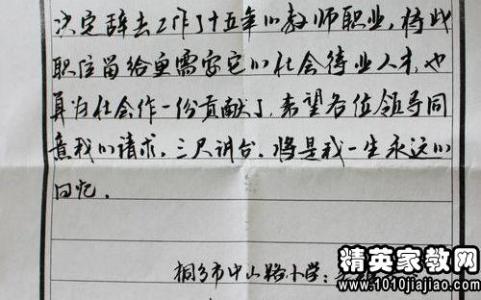 决定辞去工作了十五年的教师职业,将此
职位留给更需要它的社会待业人才,也
算为社会作一份贡献了,希望各位领导同
意我的请求。三尺讲台,将是我一生永远的
回忆。
桐乡市中山路小学:
精英家教网
www.1010jiajiao.com